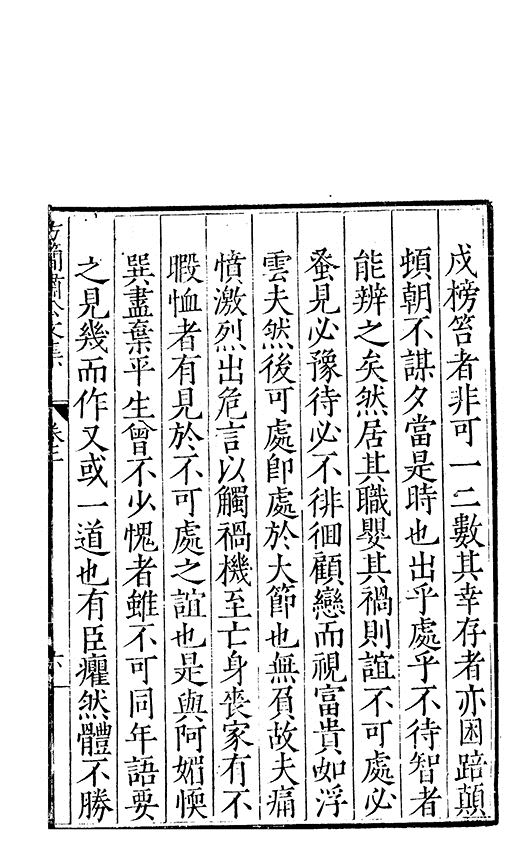 戍榜笞者非可一二數其幸存者亦困踣顛
頓朝不謀夕當是時也出乎處乎不待智者
能辨之矣然居其職嬰其禍則誼不可處必
蚤見必豫待必不徘徊顧戀而視富貴如浮
雲夫然後可處即處於大節也無負故夫痛
憤激烈出危言以觸禍機至亡身喪家有不
暇恤者有見於不可處之誼也是與阿媚愞
巽盡棄平生曾不少愧者雖不可同年語要
之見幾而作又或一道也有臣癯然體不勝
方簡肅公文集
卷三
六